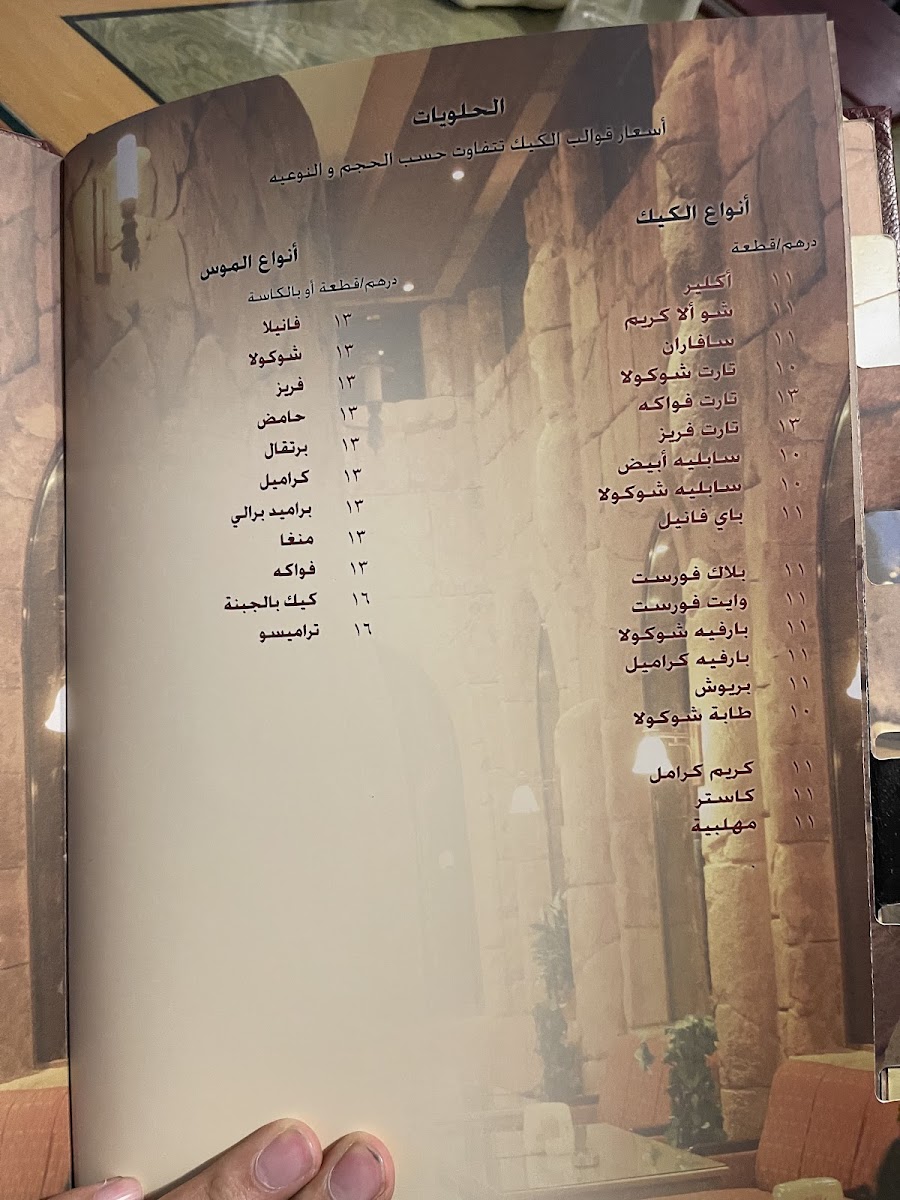 الحلويات
أسعار قوالب الكيك تتفاوت حسب الحجم و النوعيه
أنواع الكيك
درهم/قطعة
١١ أكلير
١١ شو ألا كريم
١١ سافاران
١٠ تارت شوكولا
١٣ تارت فواكه
١٣ تارت فريز
١٠ سابليه أبيض
١٠ سابليه شوكولا
١١ باي فانيل
١١ بلاك فورست
١١ وايت فورست
١١ بارفيه شوكولا
١١ بارفيه كراميل
١١ بريوش
١٠ طابة شوكولا
١١ كريم كرامل
١١ كاستر
١١ مهلبية
أنواع الموس
درهم/قطعة أو بالكاسة
١٣ فانيلا
١٣ شوكولا
١٣ فريز
١٣ حامض
١٣ برتقال
١٣ كراميل
١٣ براميد برالي
١٣ منغا
١٣ فواكه
١٦ كيك بالجبنة
١٦ تراميسو